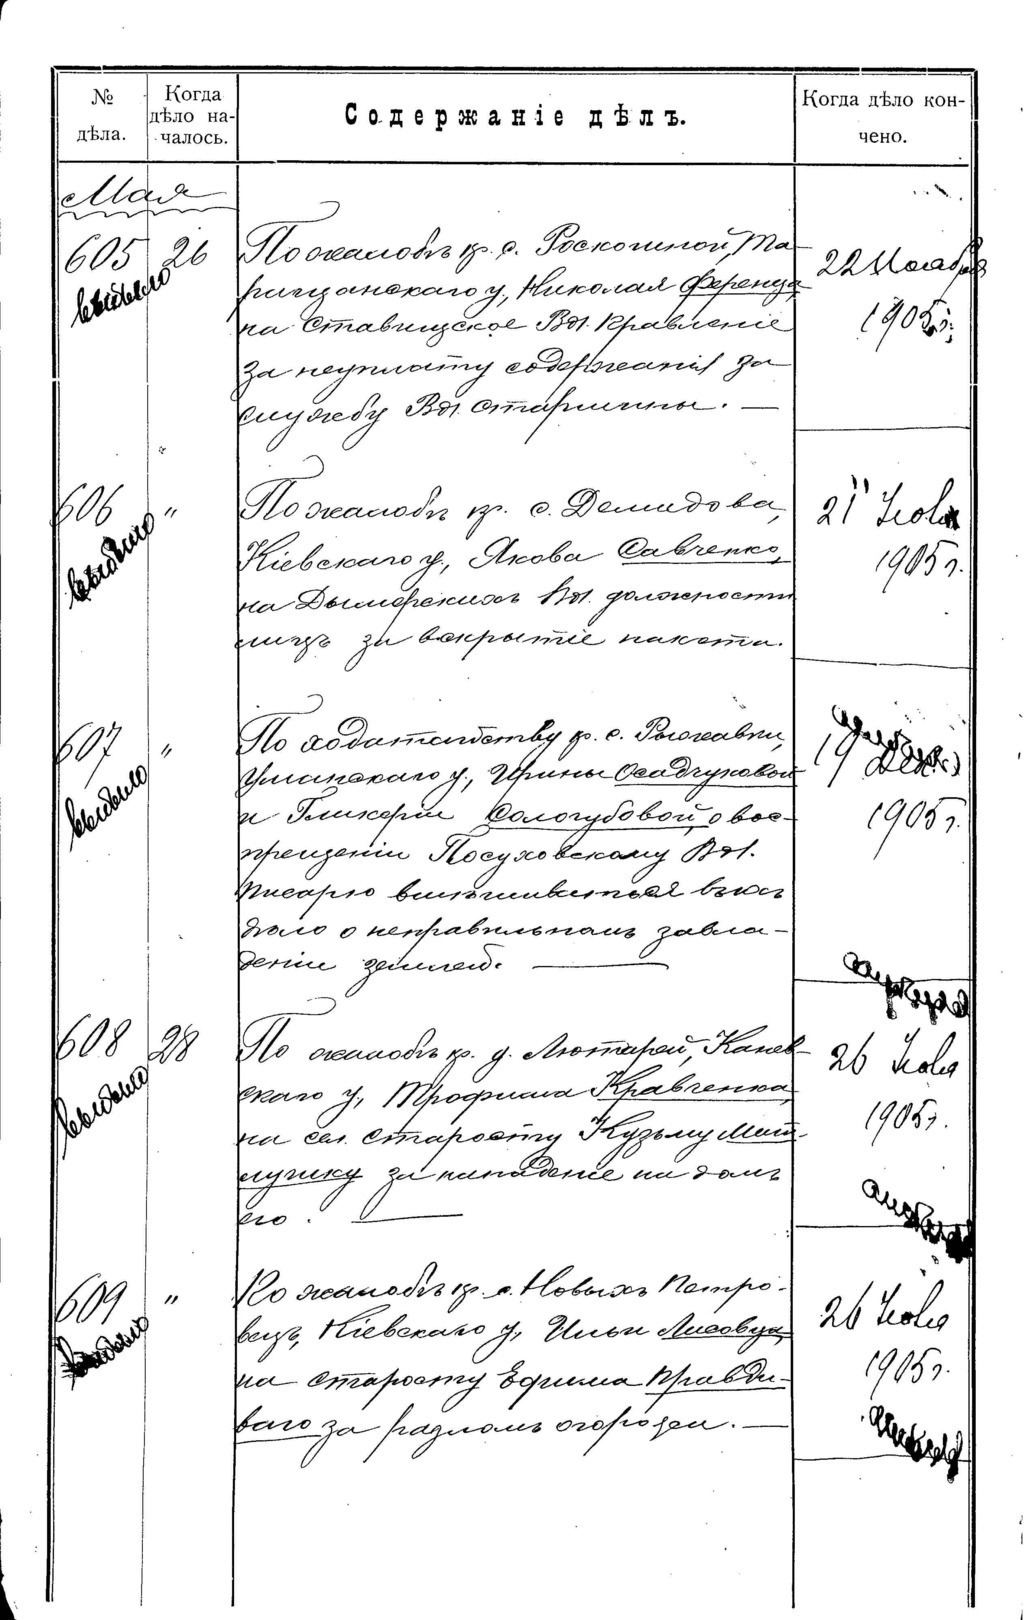 № дѣла.
Когда дѣло началось.
Содержаніе дѣлъ.
Когда дѣло кончено.
Мая
605 26 По жалобѣ кр. с. Роскошной, Та-
ращанскаго у., Николая Ференца
на Ставищское Вол. Правленіе
за неуплату содержанія за
службу Вол. старшины. —
22 Ноября
1905 г.
606 " По жалобѣ кр. с. Демидова,
Кіевскаго у., Якова Савченко,
на Дымерскихъ Вол. должностн
лицъ за вскрытіе пакета.
21 Іюля
1905 г.
607 " По ходатайству кр. с. Рыжавки,
Уманскаго у., Ирины Осадчуковой
и Гликеріи Сологубовой, о вос-
прещеніи Посуховскому Вол.
Писарю вмѣшиваться въ ихъ
дѣло о неправильномъ завла-
деніи землей. —
19 Дек.
1905 г.
608 28 По жалобѣ кр. д. Лютарей, Канев-
скаго у., Трофима Кравченка,
на сел. старосту Кузьму Мат-
лушку за нападеніе на домъ
его. —
26 Іюля
1905 г.
609 " По жалобѣ кр. с. Новыхъ Петро-
вецъ, Кіевскаго у., Ильи Лисовца,
на старосту Ефима Правди-
ваго за разломъ огорожи. —
26 Іюля
1905 г.